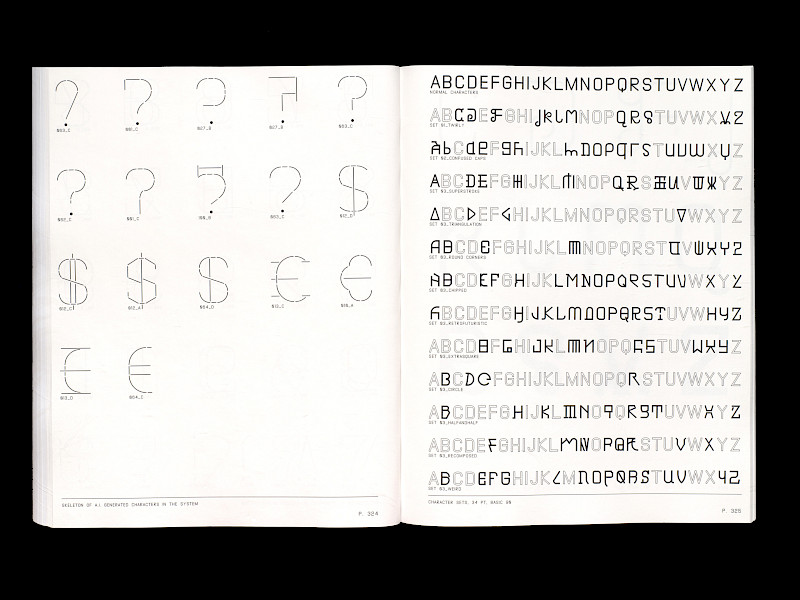 ? ? ? ? ?
? ? ? ? $
$ $ $ € €
€ €
SKELETON OF A.I. GENERATED CHARACTERS IN THE SYSTEM
P. 324
ABCDEFGHIJKLMNOPQRSTUVWXYZ
NORMAL CHARACTERS
ABCDEFGHIJKLMNOPQRSTUVWXYZ
SET N1_TWIRLY
ABCDEFGHIJKLMNOPQRSTUVWXYZ
SET N2_CONFUSED CAPS
ABCDEFGHIJKLMNOPQRSTUVWXYZ
SET N3_SUPERSTROKE
ABCDEFGHIJKLMNOPQRSTUVWXYZ
SET N3_TRIANGULATION
ABCDEFGHIJKLMNOPQRSTUVWXYZ
SET N3_ROUND CORNERS
ABCDEFGHIJKLMNOPQRSTUVWXYZ
SET N3_CHIPPED
ABCDEFGHIJKLMNOPQRSTUVWXYZ
SET N3_RETROFUTURISTIC
ABCDEFGHIJKLMNOPQRSTUVWXYZ
SET N3_EXTRASQUARE
ABCDEFGHIJKLMNOPQRSTUVWXYZ
SET N3_CIRCLE
ABCDEFGHIJKLMNOPQRSTUVWXYZ
SET N3_HALFANDHALF
ABCDEFGHIJKLMNOPQRSTUVWXYZ
SET N3_RECOMPOSED
ABCDEFGHIJKLMNOPQRSTUVWXYZ
SET N3_WEIRD
CHARACTER SETS, 24 PT, BASIC
P. 325